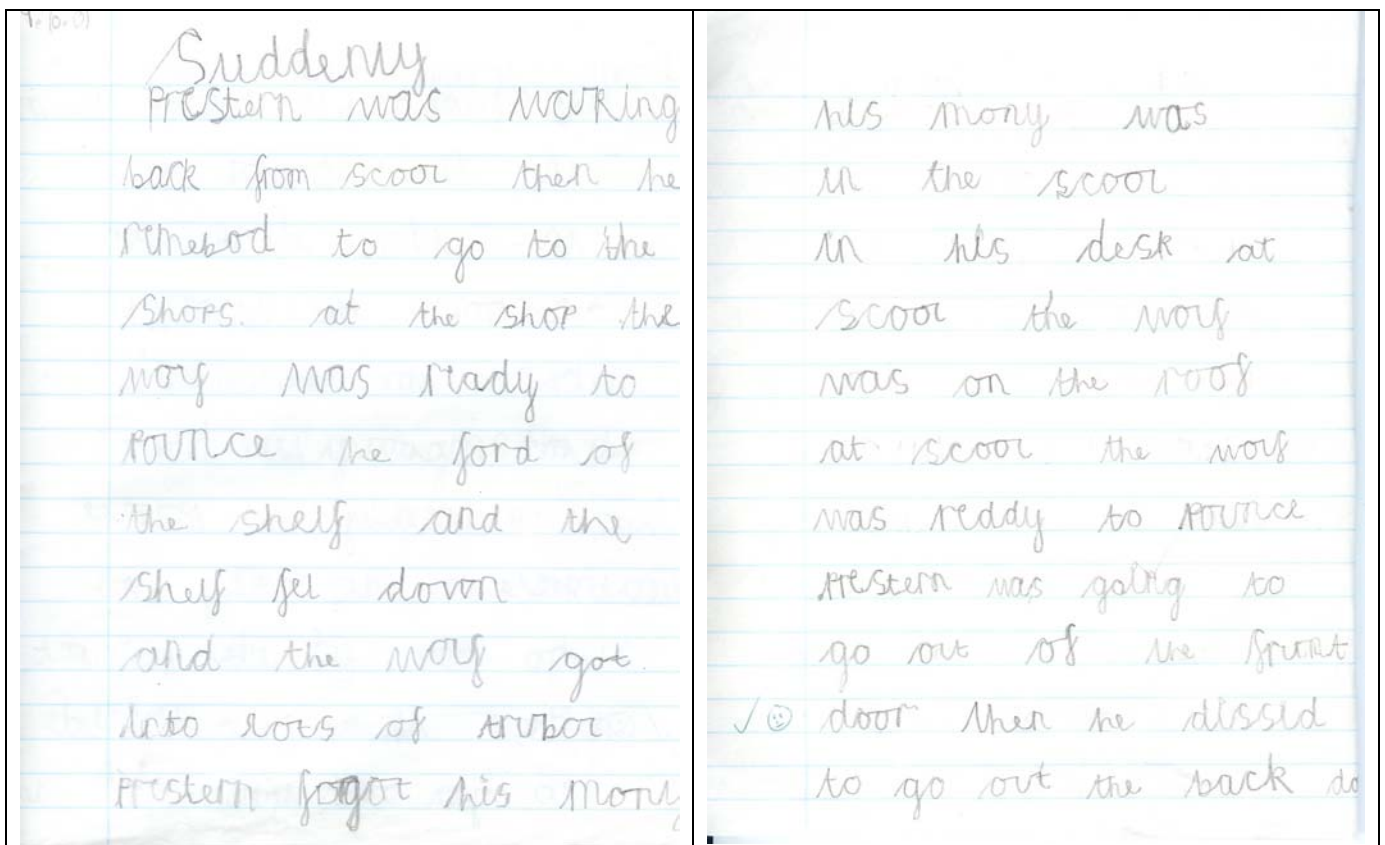 Suddenly
Prestern was walking
back from scool then he
remebod to go to the
shops. at the shop the
wolf was ready to
pounce he ford of
the shelf and the
shelf fel down
and the wolf got
into lots of trubol
prestern fogot his mony
his mony was
in the scool
in his desk at
scool the wolf
was on the roof
at scool the wolf
was reddy to pounce
prestern was going to
go out of the frunt
door then he dissid
to go out the back do